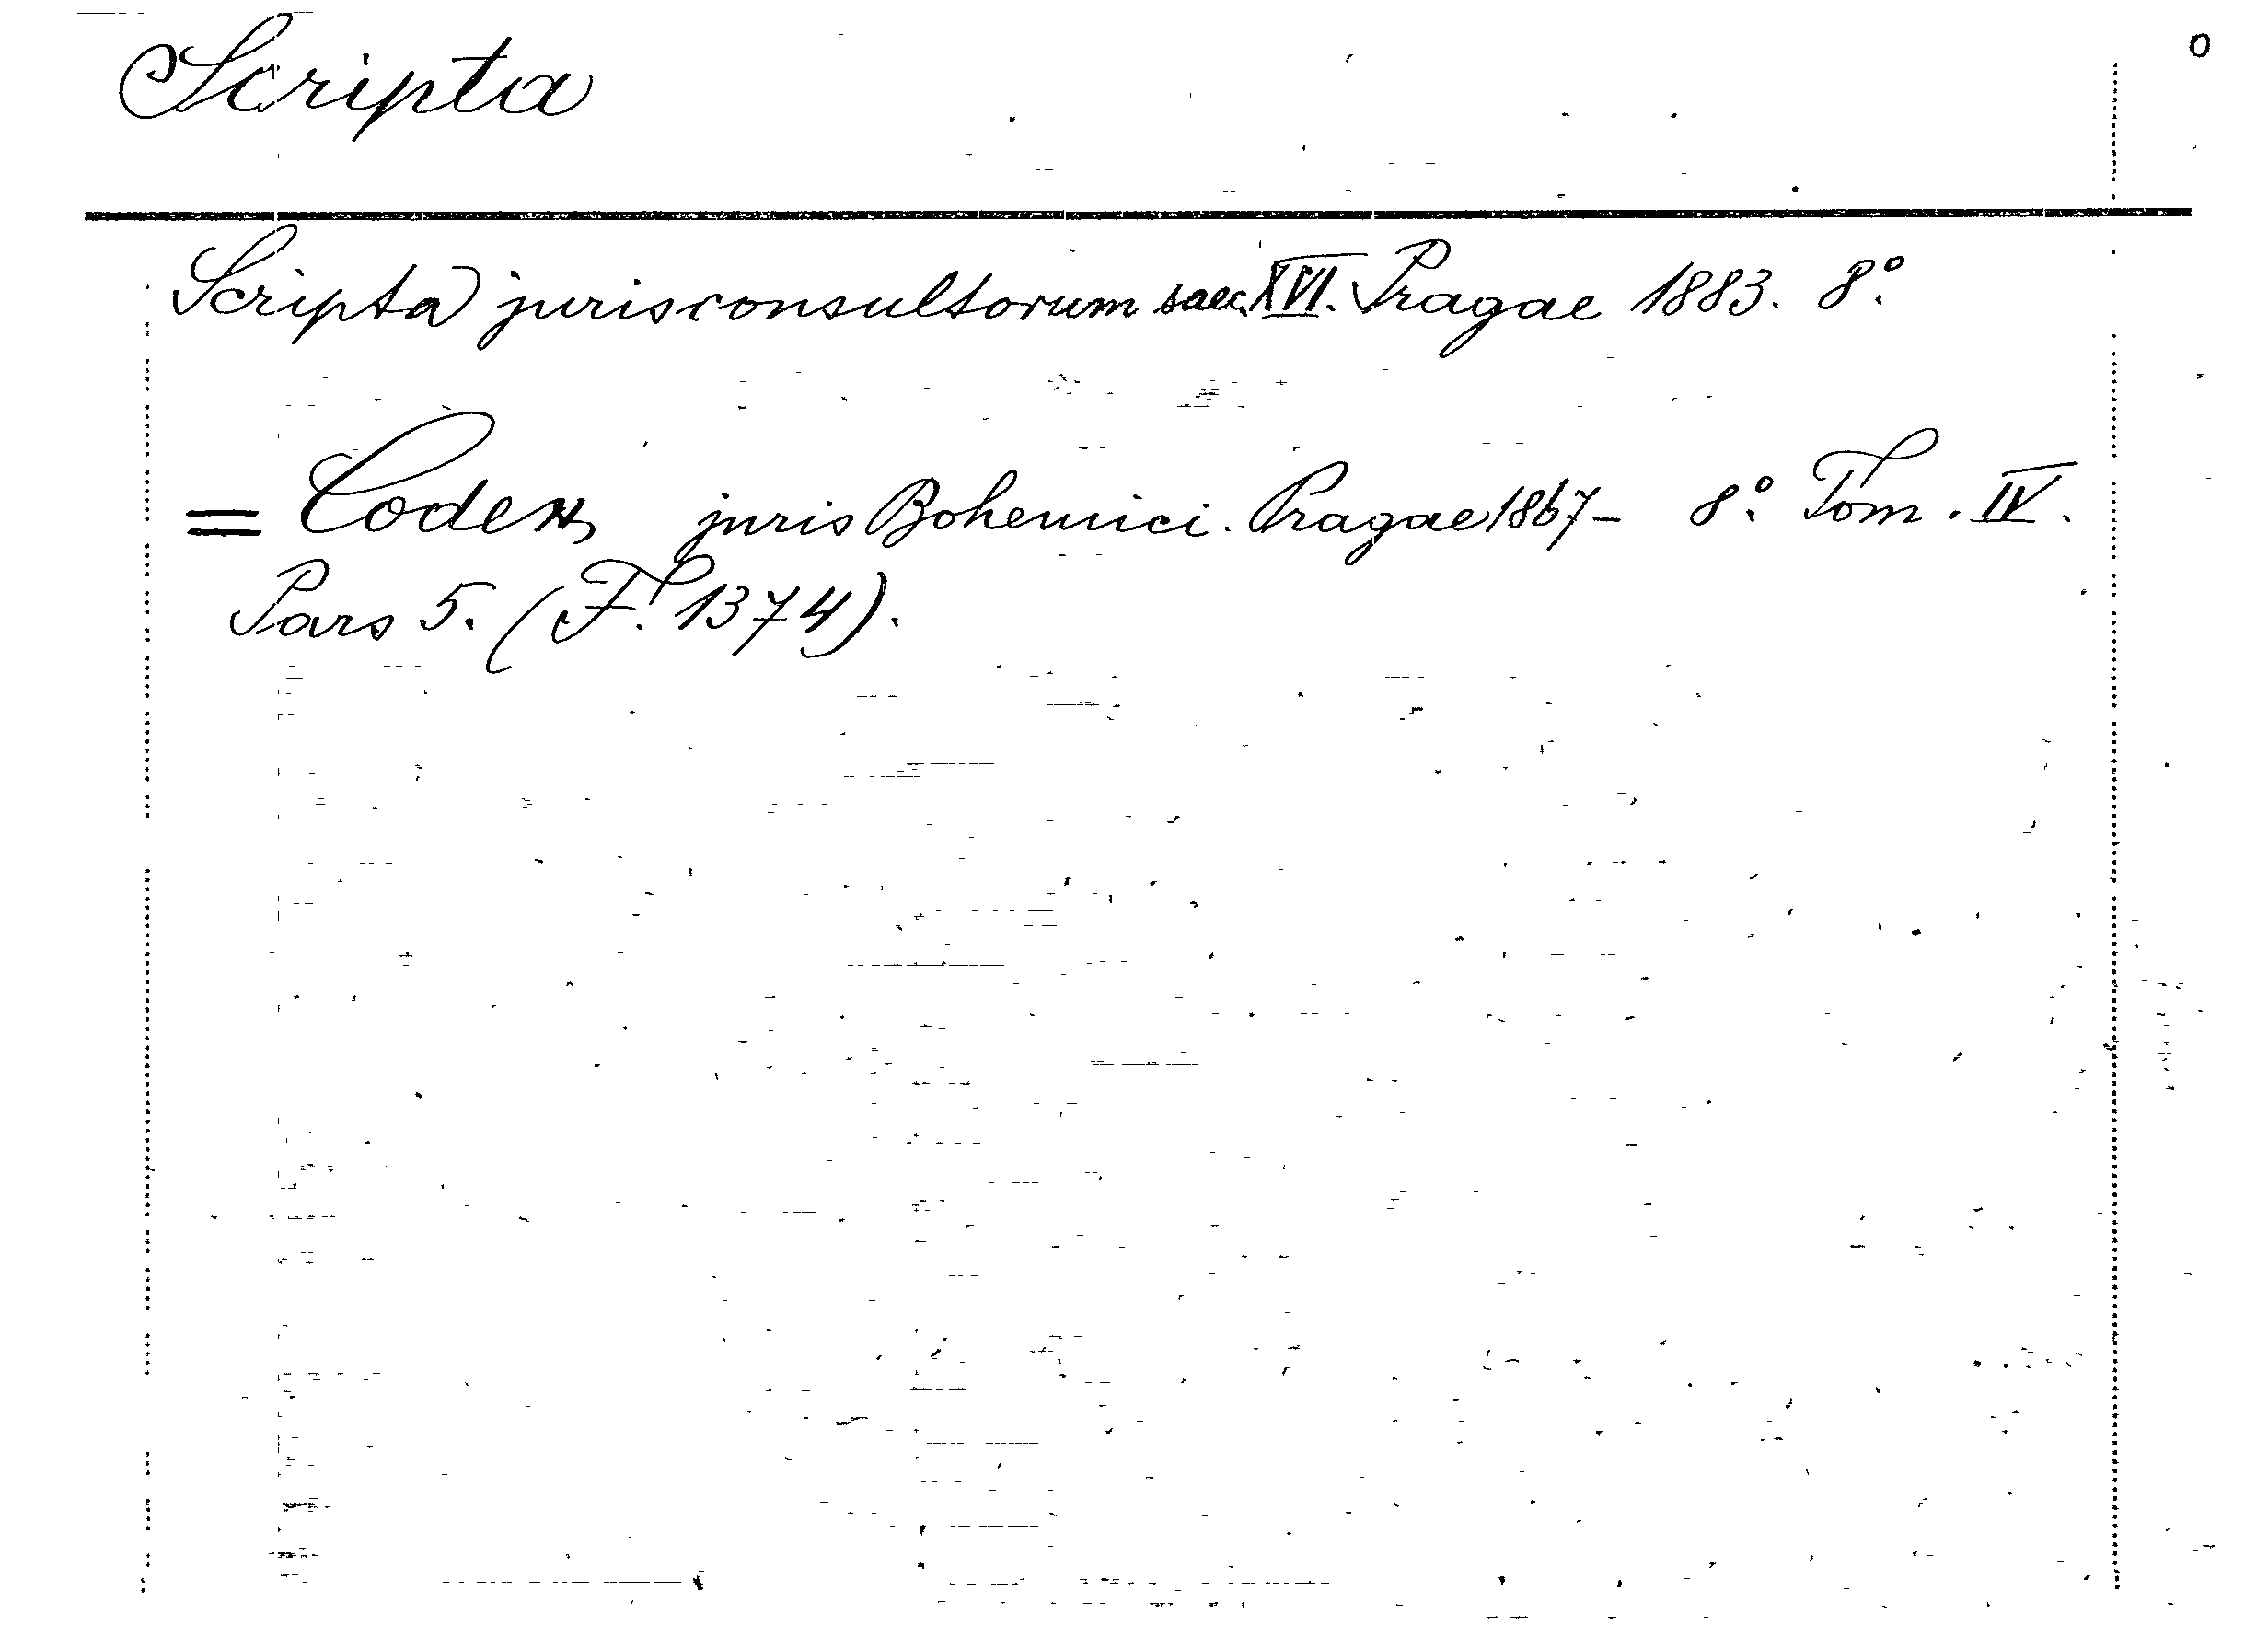 Scripta
o
Scripta jurisconsultorum saec. XVI. Pragae 1883. 8°.
= Codex juris Bohemici. Pragae 1867- 8°. Tom. IV.
Pars 5. (F. 1374).